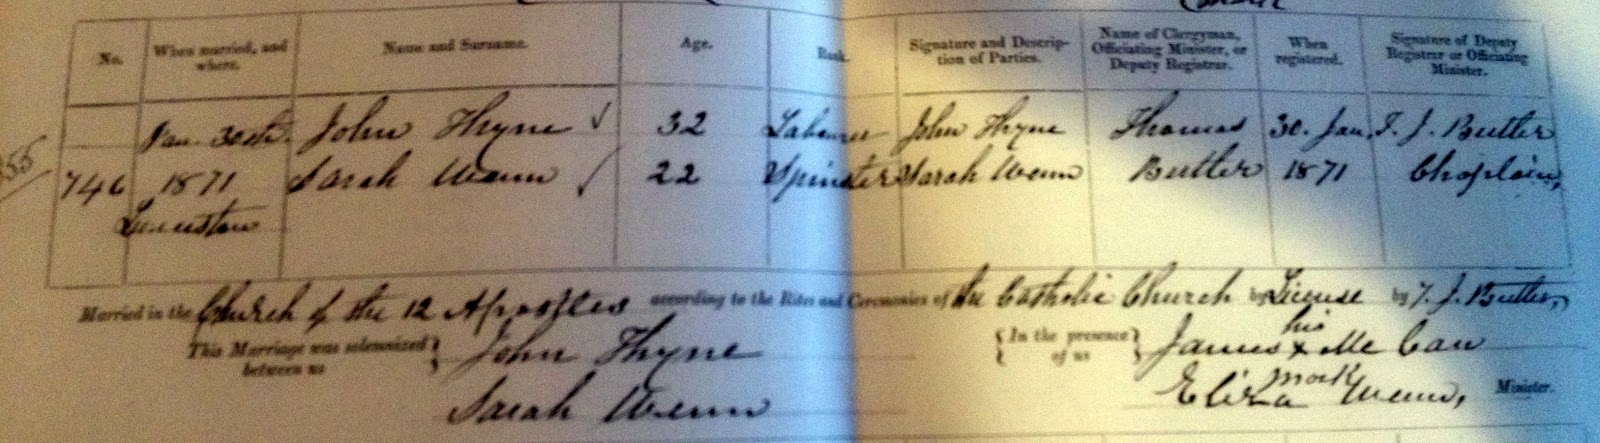 No. When married, and where. Name and Surname. Age. Rank. Signature and Description of Parties. Name of Clergyman, Officiating Minister, or Deputy Registrar. When registered. Signature of Deputy Registrar or Officiating Minister.
Jan. 30th. John Thyne 32 Labourer John Thyne Thomas 30. Jan. T. J. Butler
746 1871 Sarah Wenn 22 Spinster Sarah Wenn Butler 1871 Chaplain,
Launceston
Married in the Church of the 12 Apostles according to the Rites and Ceremonies of the Catholic Church by License by T. J. Butler,
This Marriage was solemnized between us } John Thyne { In the presence of us } James his x mark Mc Can
Sarah Wenn Eliza Wenn, Minister.